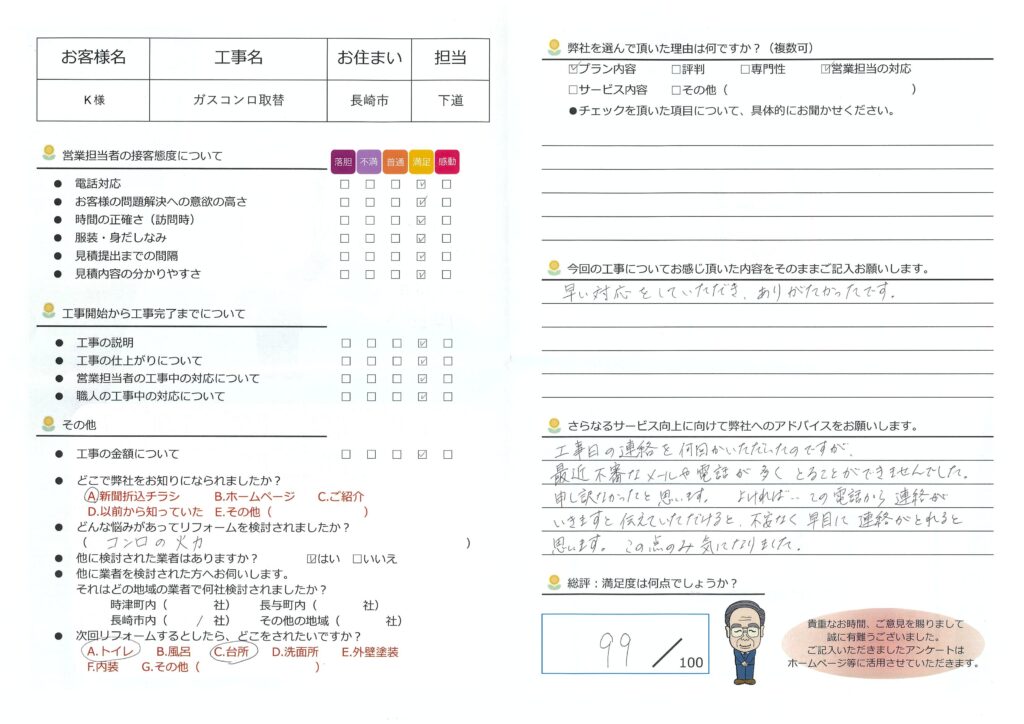 お客様名 工事名 お住まい 担当
K様 ガスコンロ取替 長崎市 下道
営業担当者の接客態度について 落胆 不満 普通 満足 感動
● 電話対応 □ □ □ ☑ □
● お客様の問題解決への意欲の高さ □ □ □ ☑ □
● 時間の正確さ（訪問時） □ □ □ ☑ □
● 服装・身だしなみ □ □ □ ☑ □
● 見積提出までの間隔 □ □ □ ☑ □
● 見積内容の分かりやすさ □ □ □ ☑ □
工事開始から工事完了までについて
● 工事の説明 □ □ □ ☑ □
● 工事の仕上がりについて □ □ □ ☑ □
● 営業担当者の工事中の対応について □ □ □ ☑ □
● 職人の工事中の対応について □ □ □ ☑ □
その他
● 工事の金額について □ □ □ ☑ □
● どこで弊社をお知りになられましたか？
A.新聞折込チラシ B.ホームページ C.ご紹介
D.以前から知っていた E.その他（ ）
● どんな悩みがあってリフォームを検討されましたか？
（ コンロの火力 ）
● 他に検討された業者はありますか？ ☑はい □いいえ
● 他に業者を検討された方へお伺いします。
それはどの地域の業者で何社検討されましたか？
時津町内（ 社） 長与町内（ 社）
長崎市内（ / 社） その他の地域（ 社）
● 次回リフォームするとしたら、どこをされたいですか？
A.トイレ B.風呂 C.台所 D.洗面所 E.外壁塗装
F.内装 G.その他（ ）
弊社を選んで頂いた理由は何ですか？（複数可）
☑プラン内容 □評判 □専門性 ☑営業担当の対応
□サービス内容 □その他（ ）
●チェックを頂いた項目について、具体的にお聞かせください。
今回の工事についてお感じ頂いた内容をそのままご記入お願いします。
早い対応をしていただき、ありがたかったです。
さらなるサービス向上に向けて弊社へのアドバイスをお願いします。
工事日の連絡を何回かいただいたのですが、
最近不審なメールや電話が多くとることができませんでした。
申し訳なかったと思います。 よければ…この電話から連絡が
いきますと伝えていただけると、不安なく早目に連絡がとれると
思います。この点のみ気になりました。
総評：満足度は何点でしょうか？
99／100
貴重なお時間、ご意見を賜りまして
誠に有難うございました。
ご記入いただきましたアンケートは
ホームページ等に活用させていただきます。